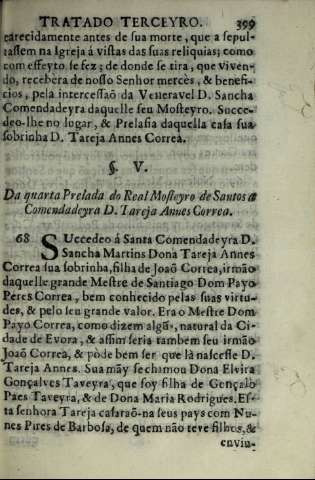 TRATADO TERCEYRO. 399
carecidamente antes de sua morte, que a sepul-
tassem na Igreja á vistas das suas reliquias; como
com effeyto se fez; de donde se tira, que viven-
do, recebèra de nosso Senhor mercès, & benefi-
cios, pela intercessaõ da Veneravel D. Sancha
Comendadeyra daquelle seu Mosteyro. Succe-
deo-lhe no lugar, & Prelasia daquella casa sua
sobrinha D. Tareja Annes Correa.
§. V.
Da quarta Prelada do Real Mosteyro de Santos a
Comendadeyra D. Tareja Annes Correa.
68 SUccedeo á Santa Comendadeyra D.
Sancha Martins Dona Tareja Annes
Correa sua sobrinha, filha de Joaõ Correa, irmão
daquelle grande Mestre de Santiago Dom Payo
Peres Correa, bem conhecido pelas suas virtu-
des, & pelo seu grande valor. Era o Mestre Dom
Payo Correa, como dizem algũs, natural da Ci-
dade de Evora, & assim seria tambem seu irmão
Joaõ Correa, & pòde bem ser que là nascesse D.
Tareja Annes. Sua mãy se chamou Dona Elvira
Gonçalves Taveyra, que foy filha de Gonçalo
Paes Taveyra, & de Dona Maria Rodrigues. Es-
ta senhora Tareja casaraõ-na seus pays com Nu-
nes Pires de Barbosa, de quem não teve filhos, &
enviu-